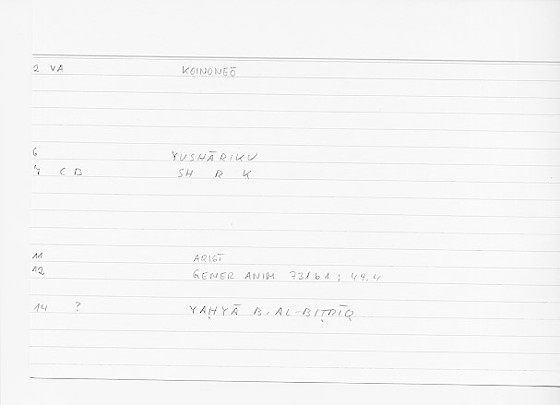 2 VA KOINONEŌ
6 YUSHĀRIKU
7 C D SH R K
11 ARIST
12 GENER ANIM 731b1 : 49.4
14 ? YAḤYĀ B. AL-BIṬRĪQ